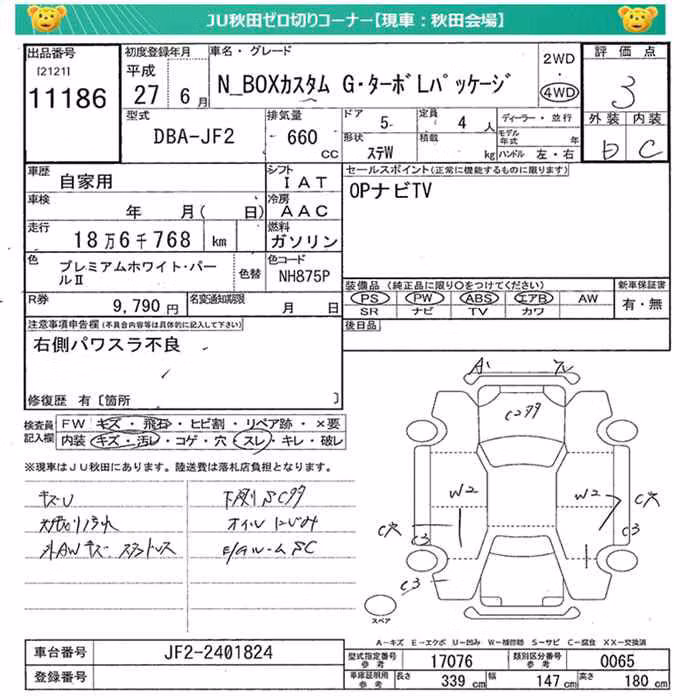 JU秋田ゼロ切りコーナー【現車：秋田会場】
出品番号
[2121]
11186
初度登録年月
平成
27 6月
車名・グレード
N_BOXカスタム G・ターボLパッケージ
2WD
・
4WD
評価点
3
外装 内装
D C
型式
DBA-JF2
排気量
660 cc
ドア 5
定員 4 人
形状 ステW
積載 kg
ディーラー・並行
モデル年式 年
ハンドル 左・右
車歴
自家用
シフト
IAT
セールスポイント(正常に機能するものに限ります)
OPナビTV
車検
年 月( 日)
冷房
AAC
走行
18万6千768 km
燃料
ガソリン
色
プレミアムホワイト・パールⅡ
色替
色コード
NH875P
装備品 (純正品に限り○をつけてください)
PS PW ABS エアB AW
SR ナビ TV カワ
新車保証書
有・無
R券
9,790 円
名変通知期限
月 日
後日品
注意事項申告欄(不具合内容等は具体的に記入して下さい)
右側パワスラ不良
修復歴 有〔箇所 〕
検査員記入欄
FW キズ・飛石・ヒビ割・リペア跡・×要
内装 キズ・汚レ・コゲ・穴・スレ・キレ・破レ
※現車はJU秋田にあります。陸送費は落札店負担となります。
キズU
下廻りSCタタ
オイルにじみ
外AWキズ スタッドレス
Cタタ
W2
W2
C穴
C穴
C3
C3
C3
スペア
A－キズ E－エクボ U－凹み W－補修跡 S－サビ C－腐食 XX－交換済
車台番号
JF2-2401824
登録番号
型式指定番号 参考
17076
類別区分番号 参考
0065
車庫証明用 参考
長さ 339 cm
幅 147 cm
高さ 180 cm